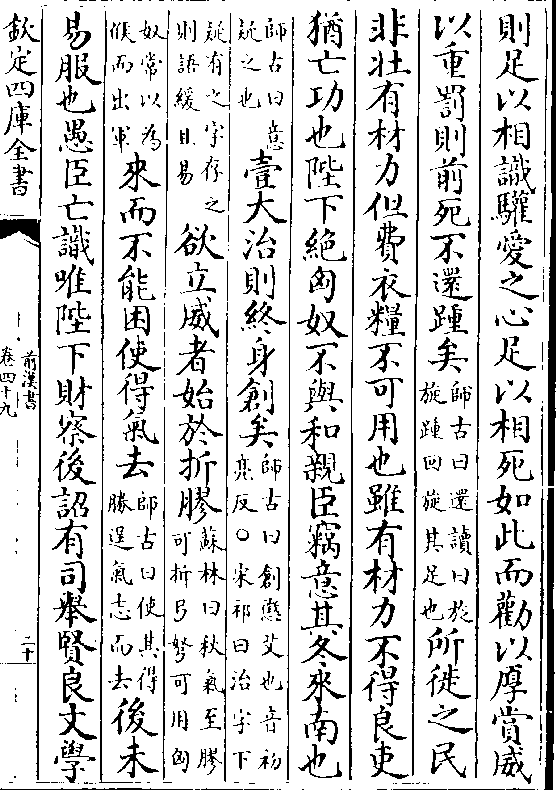 則足以相識驩愛之心足以相死如此而勸以厚賞威
以重罰則前死不還踵矣師古曰還讀曰旋旋踵回旋其足也所徙之民
非壮有材力但費衣糧不可用也雖有材力不得良吏
猶亡功也陛下絶匈奴不與和親臣竊意其冬來南也
師古曰意疑之也壹大治則終身創矣師古曰創懲艾也音初亮反○宋祁曰治字下
疑有之字存之則語緩且易欲立威者始於折膠蘇林曰秋氣至膠可折弓弩可用匈
奴常以為候而出軍來而不能困使得氣去師古曰使其得勝逞氣志而去後未
易服也愚臣亡識唯陛下財察後詔有司舉賢良文學
欽定四庫全書
前漢書
卷四十九
二十